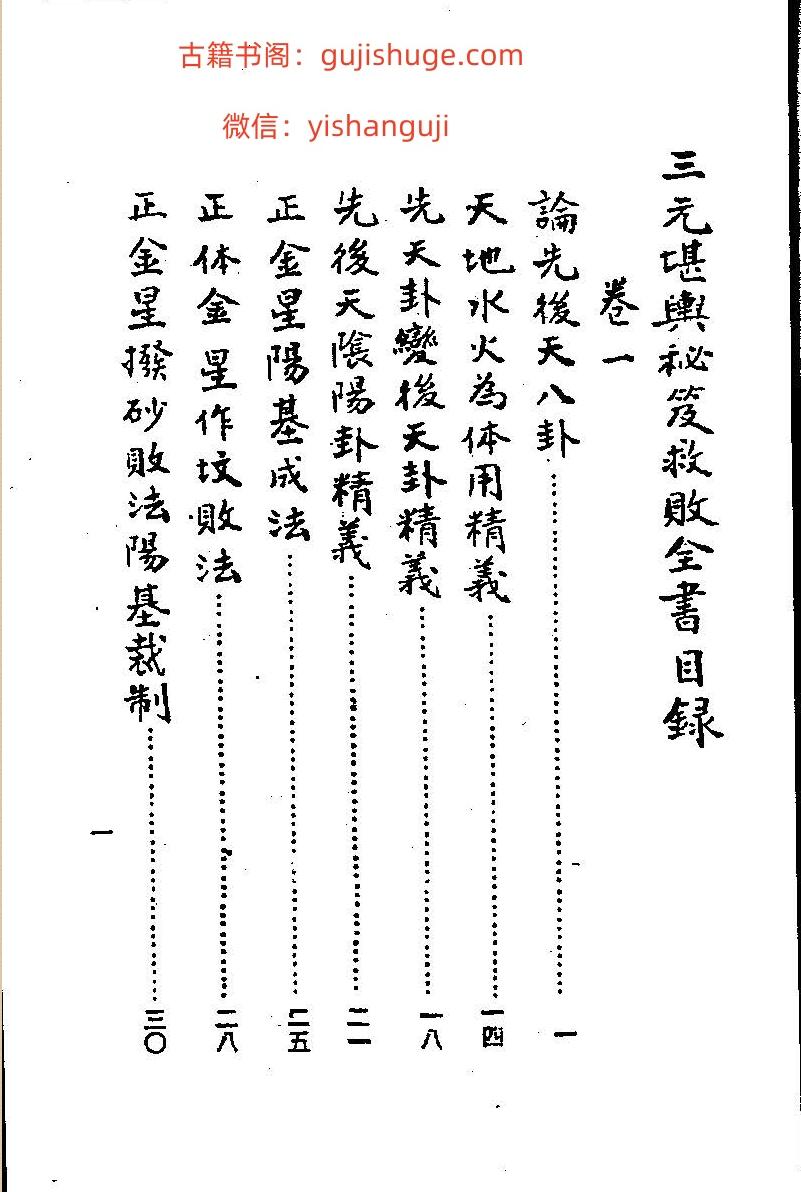 古籍书阁：gujishuge.com
微信：yishanguji
三元堪輿秘笈救敗全書目録
卷一
論先後天八卦……一
天地水火為体用精義……一四
先天卦變後天卦精義……一八
先後天陰陽卦精義……二一
正金星陽基成法……二五
正体金星作坟敗法……二八
正金星撥砂敗法陽基裁制……三〇
一